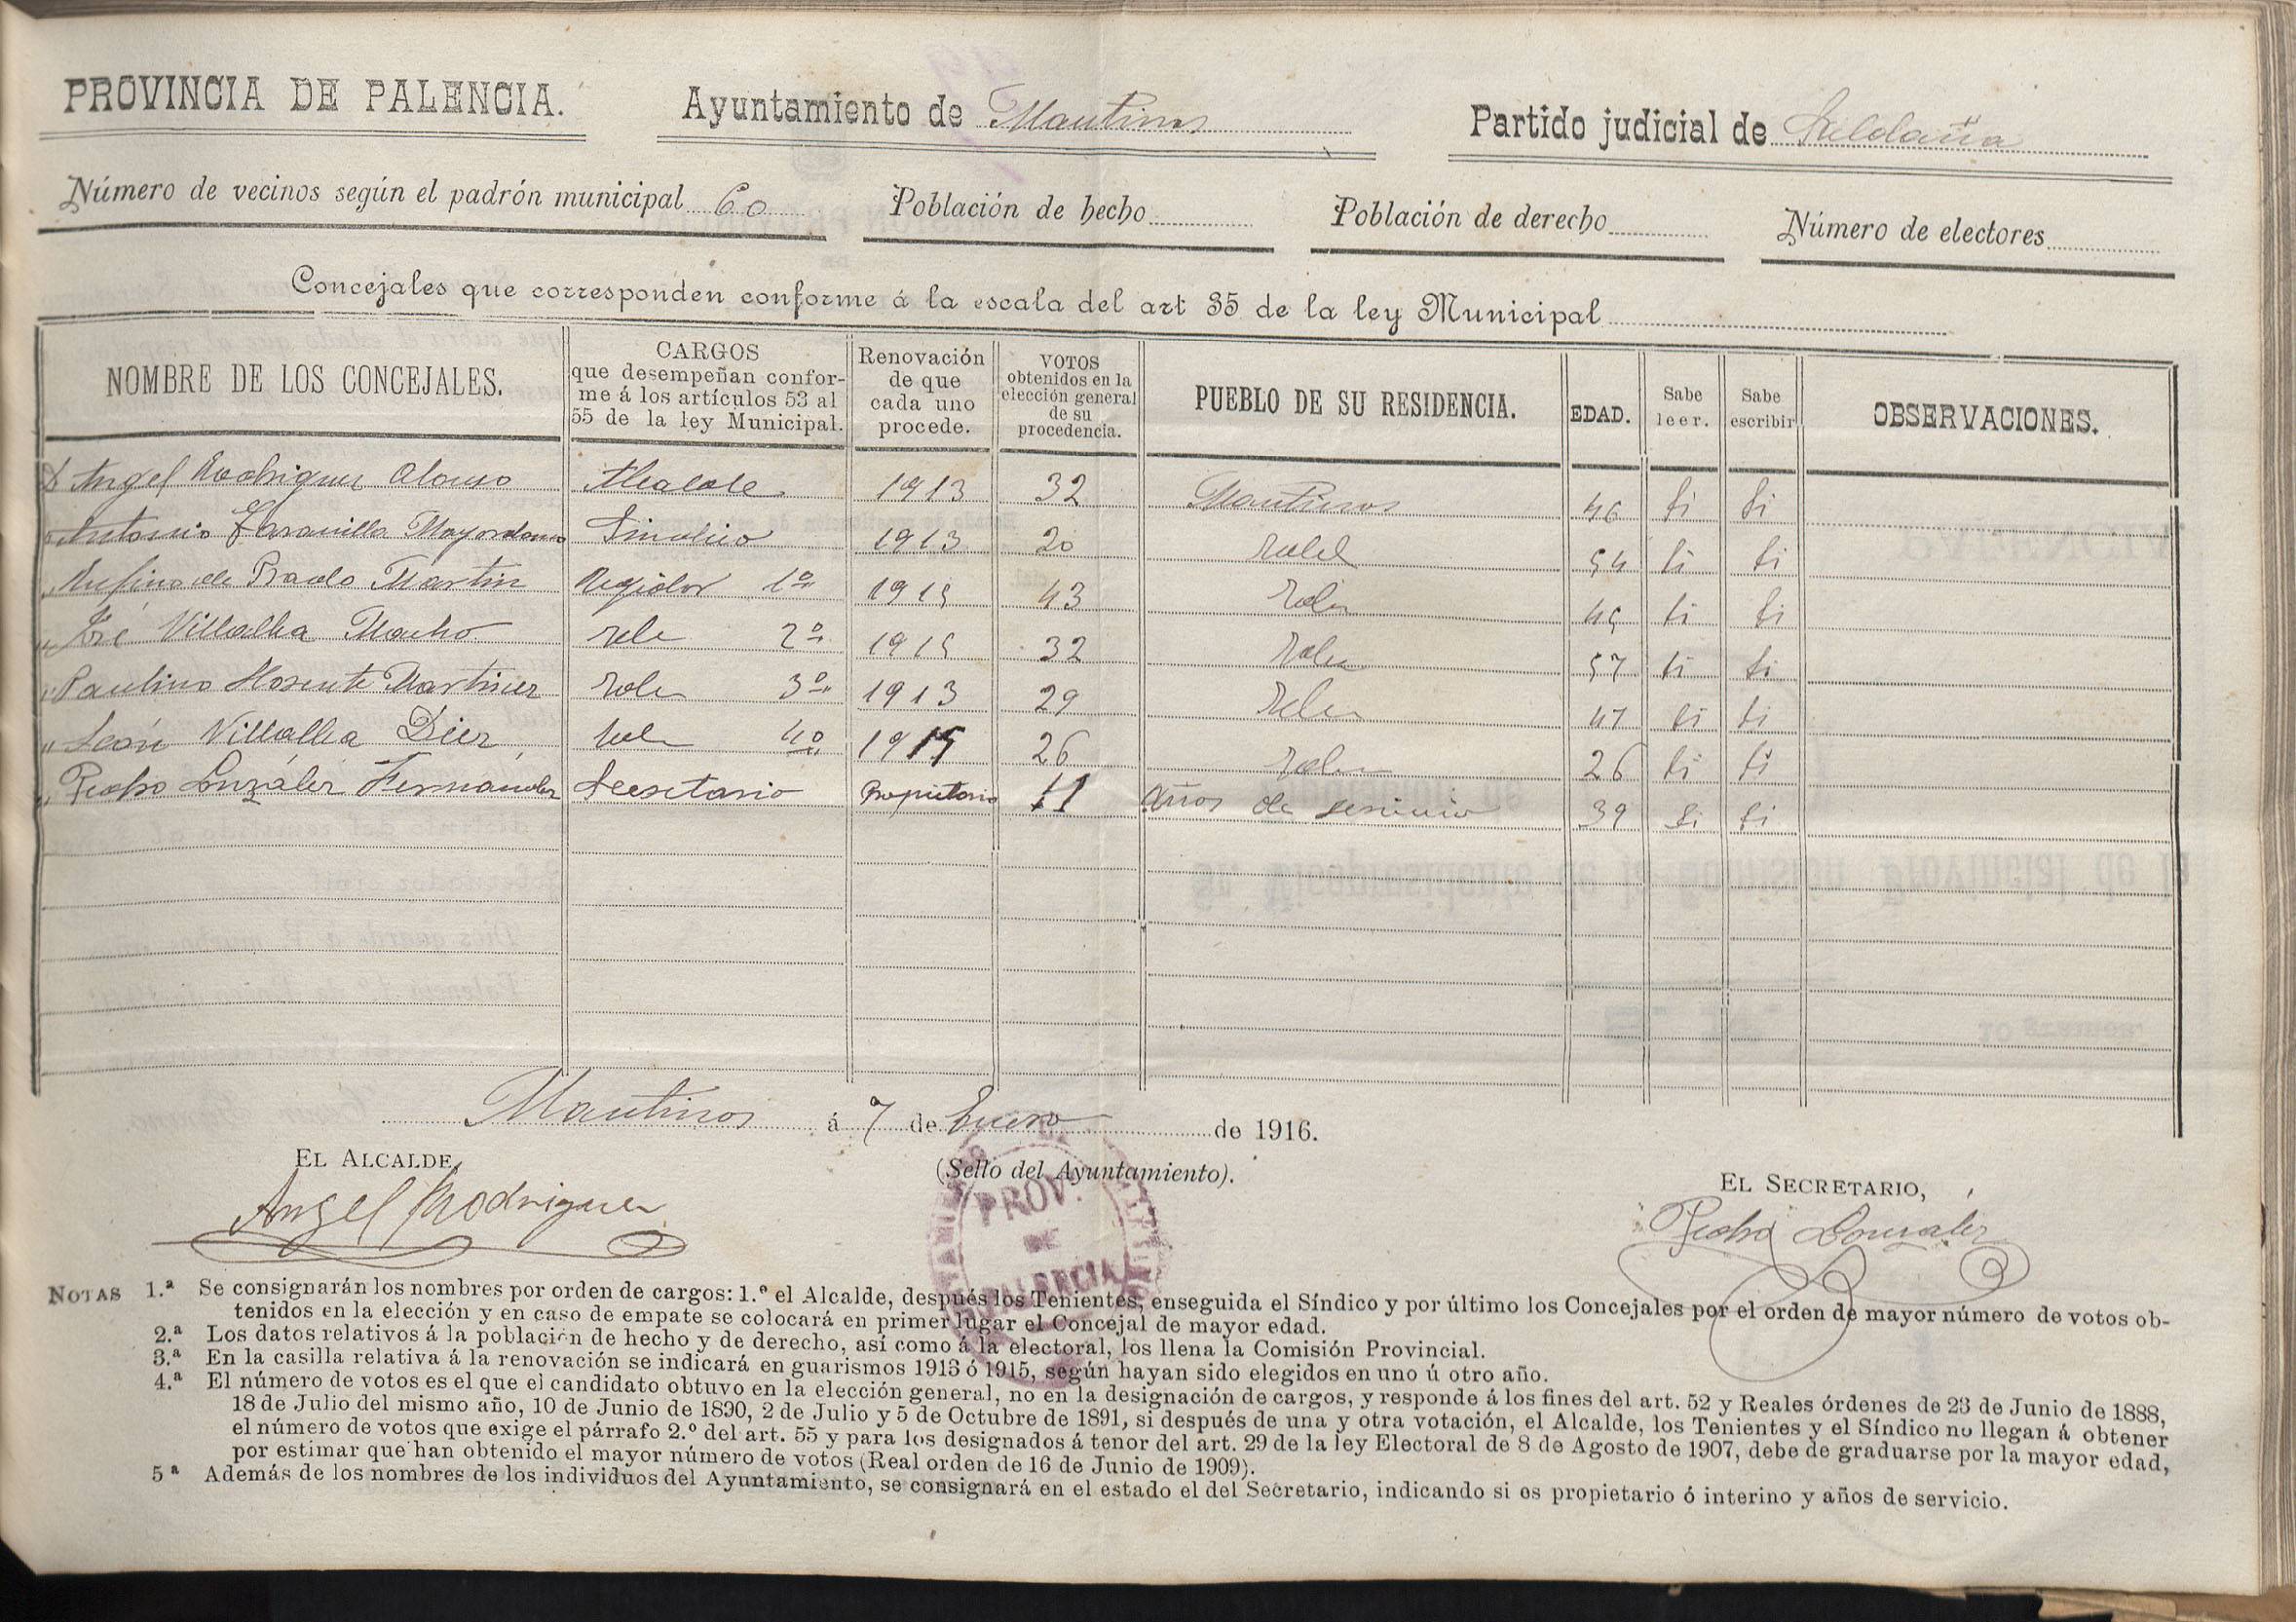 PROVINCIA DE PALENCIA. Ayuntamiento de Mantinos Partido judicial de Saldaña
Número de vecinos según el padrón municipal 60 Población de hecho Población de derecho Número de electores
Concejales que corresponden conforme á la escala del art 35 de la ley Municipal
NOMBRE DE LOS CONCEJALES. CARGOS que desempeñan confor- me á los artículos 53 al 55 de la ley Municipal. Renovación de que cada uno procede. VOTOS obtenidos en la elección general de su procedencia. PUEBLO DE SU RESIDENCIA. EDAD. Sabe leer. Sabe escribir OBSERVACIONES.
D Angel Rodriguez Alonso Alcalde 1913 32 Mantinos 46 Si Si
" Antonio Taranilla Mayordomo Sindico 1913 20 54 Si Si
" Rufino de Prado Martin Regidor 1º 1915 43 45 Si Si
" José Villalba Macho 2º 1915 32 57 Si Si
" Paulino Martinez 3º 1913 29 47 Si Si
" León Villalba Diez 4º 1915 26 26 Si Si
" Pedro Gonzáles Fernández Secretario Propietario 11 años de servicio 39 Si Si
Mantinos á 7 de Enero de 1916.
EL ALCALDE, (Sello del Ayuntamiento). EL SECRETARIO,
Angel Rodriguez PROV. DE PALENCIA Pedro Gonzalez
NOTAS 1.ª Se consignarán los nombres por orden de cargos: 1.º el Alcalde, después los Tenientes, enseguida el Síndico y por último los Concejales por el orden de mayor número de votos ob-
tenidos en la elección y en caso de empate se colocará en primer lugar el Concejal de mayor edad.
2.ª Los datos relativos á la población de hecho y de derecho, así como á la electoral, los llena la Comisión Provincial.
3.ª En la casilla relativa á la renovación se indicará en guarismos 1913 ó 1915, según hayan sido elegidos en uno ú otro año.
4.ª El número de votos es el que el candidato obtuvo en la elección general, no en la designación de cargos, y responde á los fines del art. 52 y Reales órdenes de 23 de Junio de 1888,
18 de Julio del mismo año, 10 de Junio de 1890, 2 de Julio y 5 de Octubre de 1891, si después de una y otra votación, el Alcalde, los Tenientes y el Síndico no llegan á obtener
el número de votos que exige el párrafo 2.º del art. 55 y para los designados á tenor del art. 29 de la ley Electoral de 8 de Agosto de 1907, debe de graduarse por la mayor edad,
por estimar que han obtenido el mayor número de votos (Real orden de 16 de Junio de 1909).
5ª Además de los nombres de los individuos del Ayuntamiento, se consignará en el estado el del Secretario, indicando si es propietario ó interino y años de servicio.